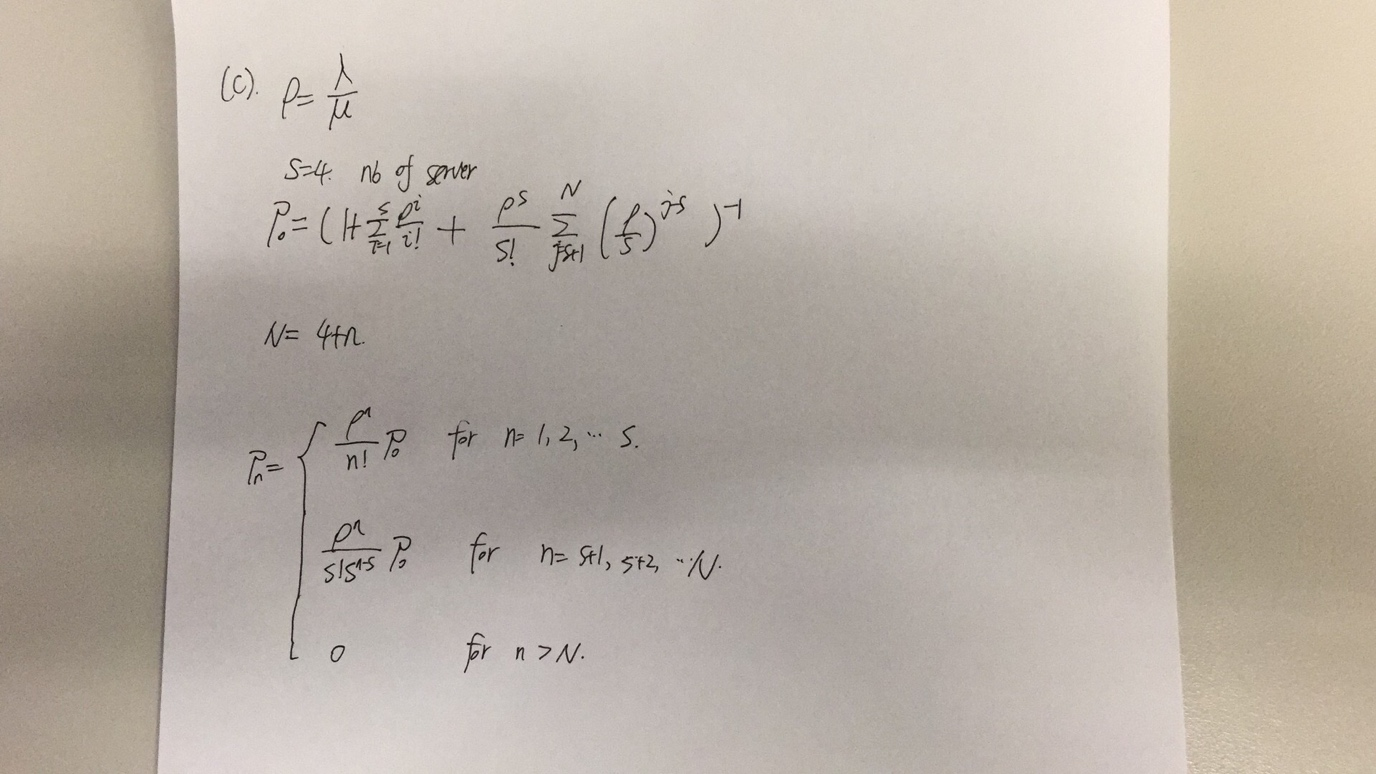 (c). ρ = λ/μ
S=4. nb of server
P₀ = (1+ Σ_{i=1}^{s} ρ^i/i! + ρ^s/s! Σ_{j=s+1}^{N} (ρ/s)^{j-s} )^{-1}
N= 4+n.
Pₙ = { ρ^n/n! P₀ for n= 1, 2, ... s.
ρ^n/(s!s^{n-s}) P₀ for n= s+1, s+2, ... N.
0 for n > N.